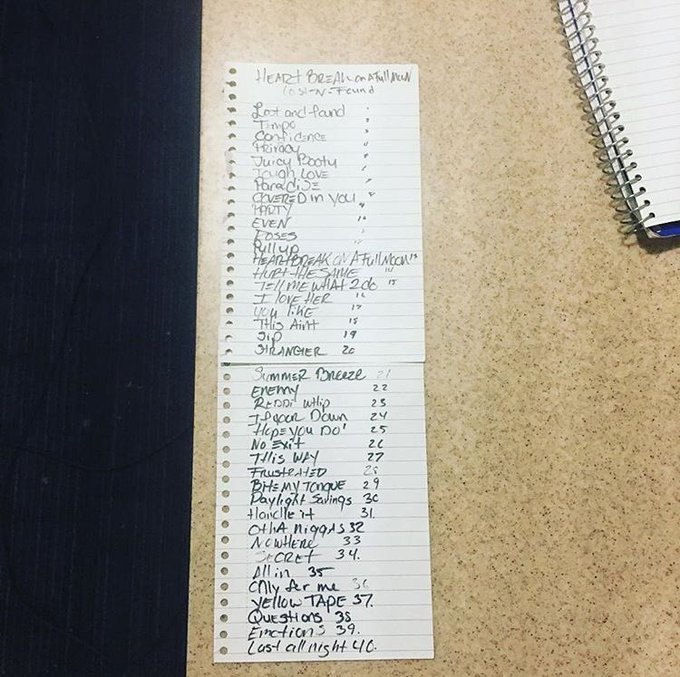 HEARTBREAK on A Full Moon
Lost-N-Found
Lost and found
Tempo
Confidence
Privacy
Juicy Booty
Tough LOVE
Paradise
COVERED in you 8
PARTY 9
EVEN 10
Roses
Pull up
HEARTBREAK ON A Full Moon 13
HURT THE SAME 14
TELL ME WHAT 2 do 15
I love Her 16
you like 17
This Aint 18
Sip 19
STRANGER 20
SUMMER Breeze 21
ENEMY 22
REDDI whip 23
If your Down 24
Hope you Do! 25
No Exit 26
This WAY 27
FRUSTRATED 28
Bite my Tongue 29
Daylight Savings 30
Handle it 31.
OthA niggas 32
NOWHERE 33
SECRET 34.
All in 35
Only for me 36
yellow TAPE 37.
Questions 38
Emotions 39.
Last all night 40.